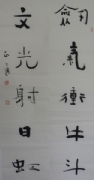 劍氣衝牛斗
文光射日虹